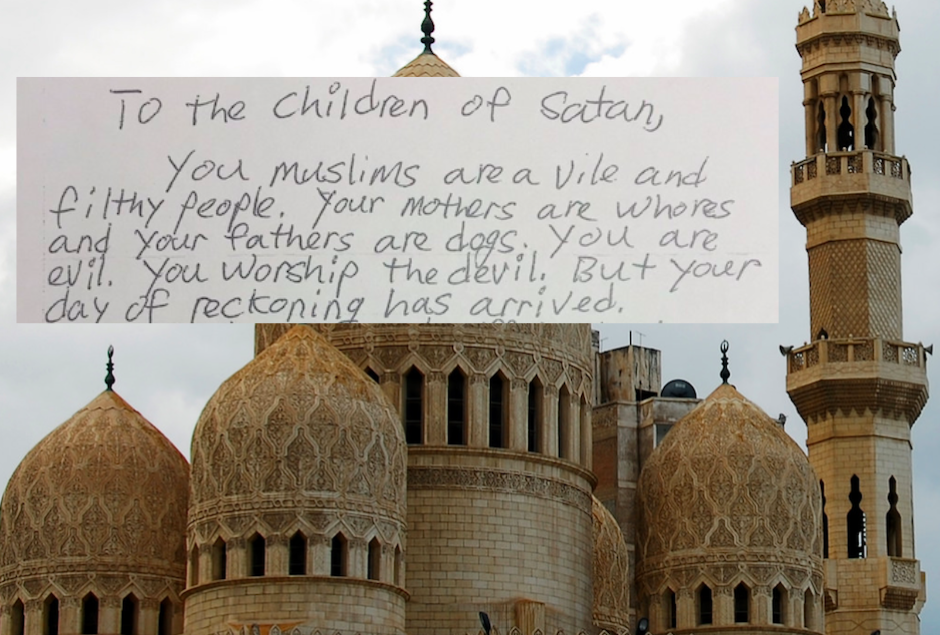 To the Children of Satan,
You muslims are a vile and
filthy people. Your mothers are whores
and your fathers are dogs. You are
evil. You worship the devil. But your
day of reckoning has arrived.